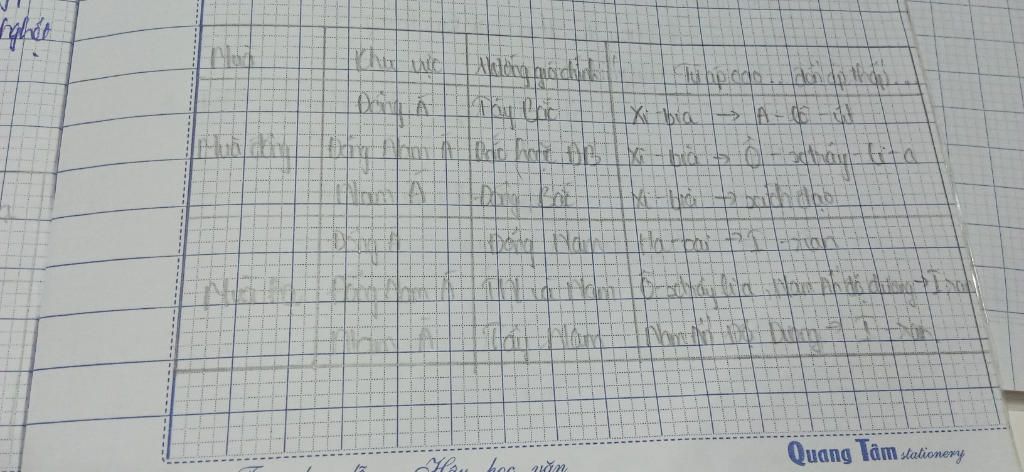 nghét
Mùa Khu vực Hướng gió chính Từ áp cao .. đến áp thấp ..
Đông Á Tây Bắc Xi-bia → A-lê-út
Mùa đông Đông Nam Á Bắc hoặc ĐB Xi-bia → Ô-xtrây-li-a
Nam Á Đông Bắc Xi-bia → xích đạo
Đông Á Đông Nam Ha-oai → I-ran
Mùa hạ Đông Nam Á TN Nam Ô-xtrây-lia, Nam Ấn Độ Dương → I-ran
Nam Á Tây Nam Nam Ấn Độ Dương → I-ran
Quang Tâm stationery
học văn